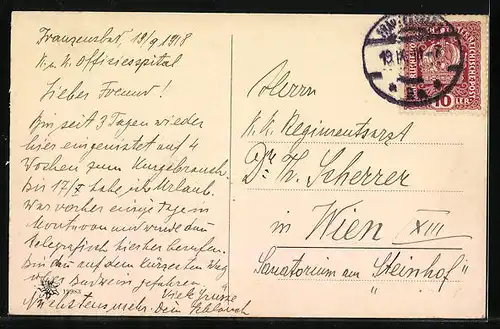 Franzensbad, 19/9 1918
K. u. K. Offiziersspital
Lieber Freund!
Bin seit 3 Tagen wieder
hier eingenistet auf 4
Wochen zum Kurgebrauch.
Bis 17/X habe ich Urlaub.
War vorher einige Tage in
und wurde dann
telegrafisch hierher berufen.
Bin dann auf dem kürzesten Weg
gefahren.
Viele Grüsse
Nächstens mehr. Dein
Herrn
K. K. Regimentsarzt
Dr. Th. Scherrer
in Wien XIII
Sanatorium am "Steinhof"
10